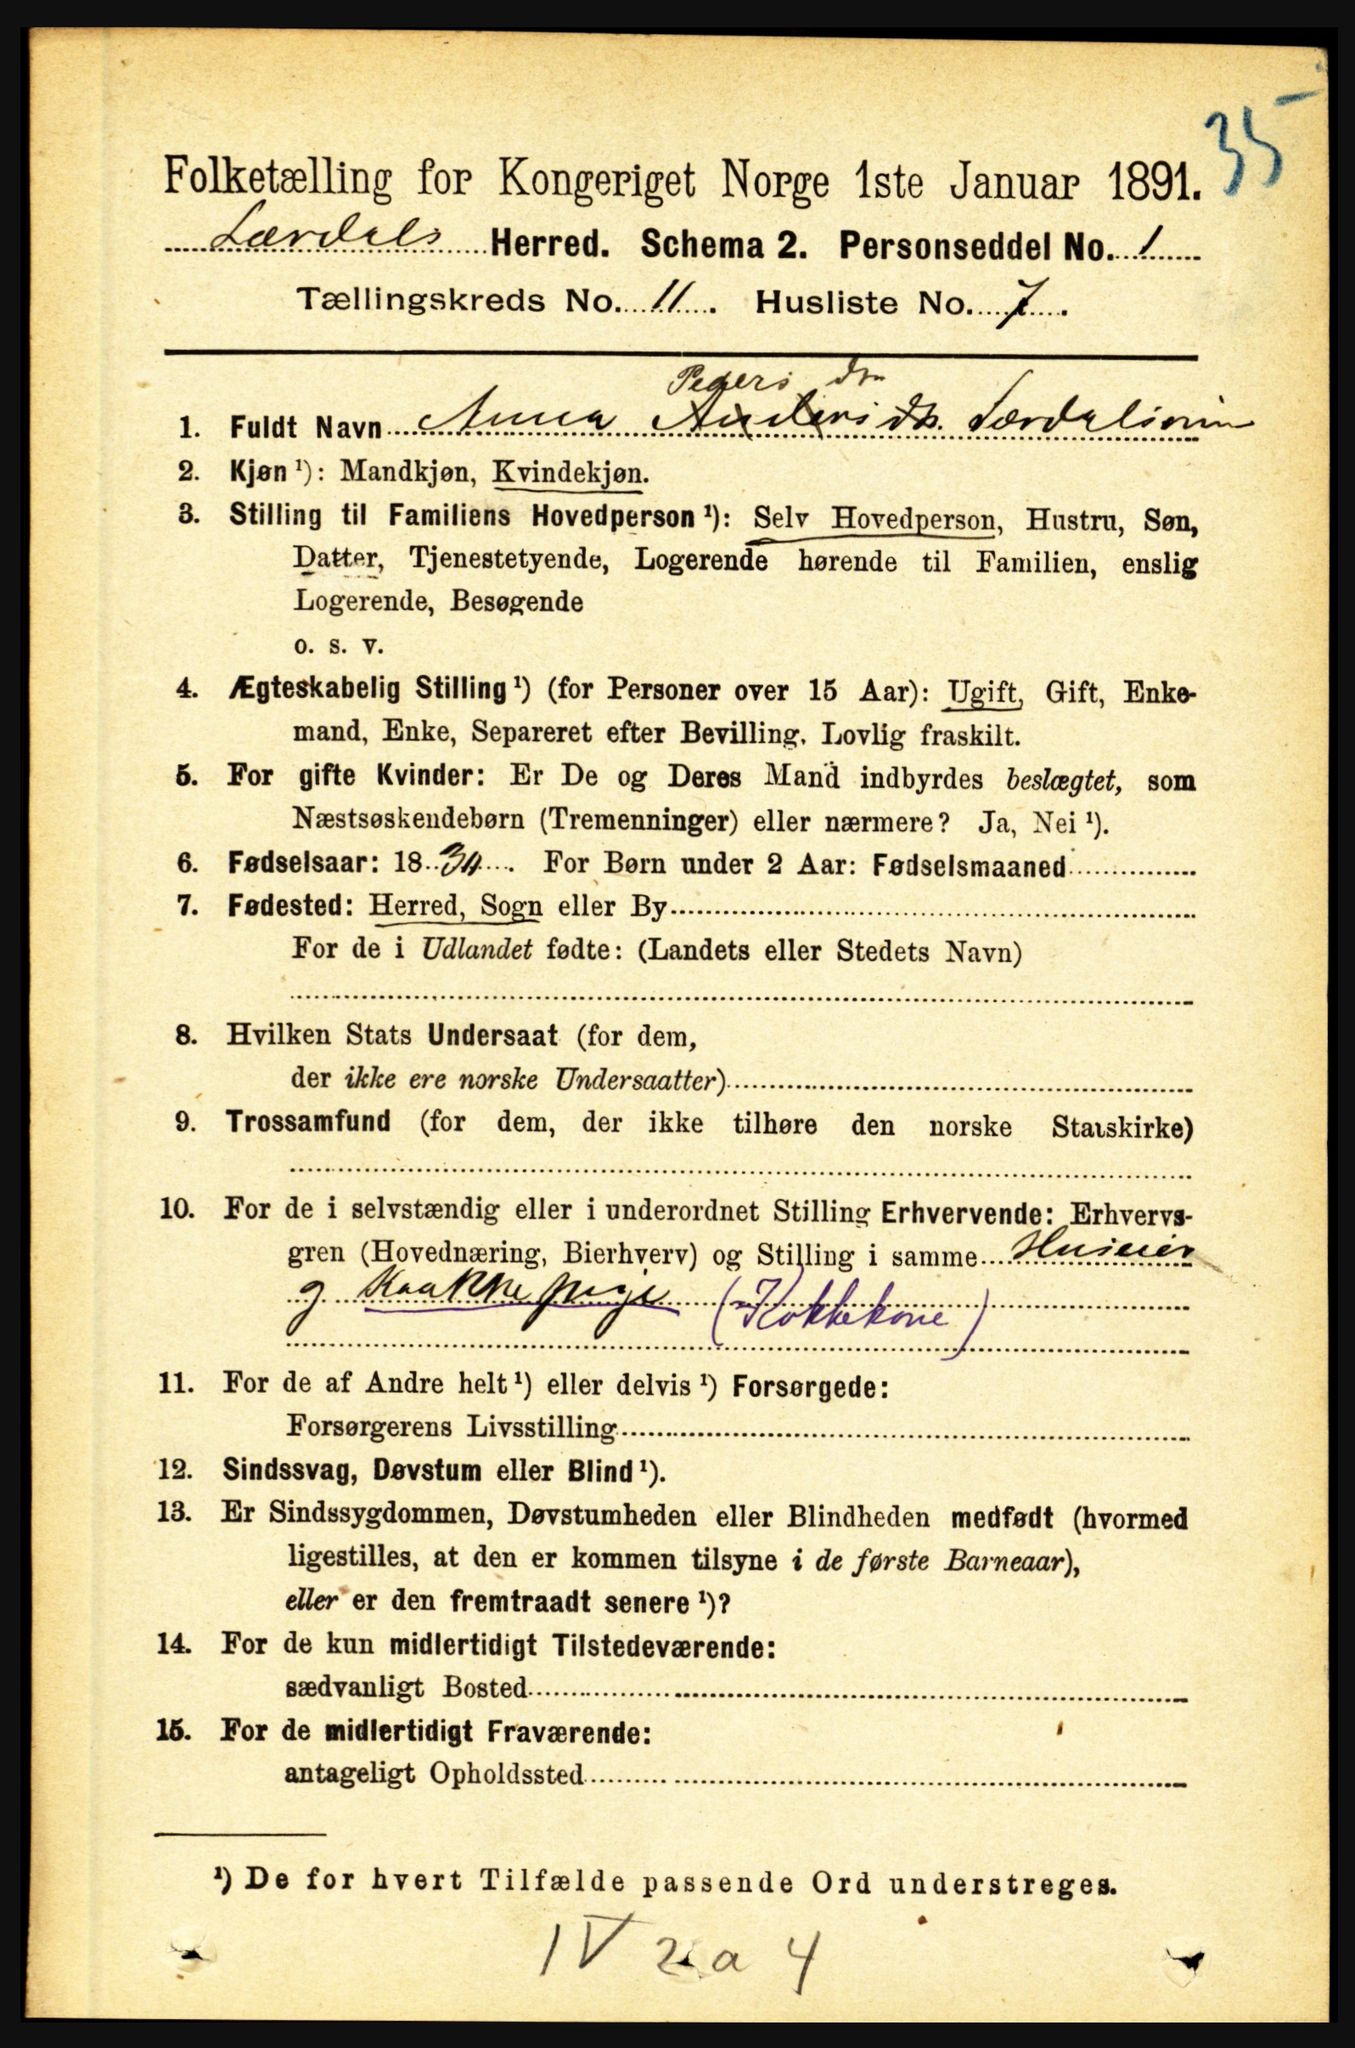 35
Folketælling for Kongeriget Norge 1ste Januar 1891.
Lærdals Herred. Schema 2. Personseddel No. 1
Tællingskreds No. 11. Husliste No. 7.
Peders dtr
1. Fuldt Navn Anna Andersdtr. Lærdalsøren
2. Kjøn ¹): Mandkjøn, Kvindekjøn.
3. Stilling til Familiens Hovedperson ¹): Selv Hovedperson, Hustru, Søn,
Datter, Tjenestetyende, Logerende hørende til Familien, enslig
Logerende, Besøgende
o. s. v.
4. Ægteskabelig Stilling ¹) (for Personer over 15 Aar): Ugift, Gift, Enke-
mand, Enke, Separeret efter Bevilling. Lovlig fraskilt.
5. For gifte Kvinder: Er De og Deres Mand indbyrdes beslægtet, som
Næstsøskendebørn (Tremenninger) eller nærmere? Ja, Nei ¹).
6. Fødselsaar: 18 34. For Børn under 2 Aar: Fødselsmaaned
7. Fødested: Herred, Sogn eller By
For de i Udlandet fødte: (Landets eller Stedets Navn)
8. Hvilken Stats Undersaat (for dem,
der ikke ere norske Undersaatter)
9. Trossamfund (for dem, der ikke tilhøre den norske Statskirke)
10. For de i selvstændig eller i underordnet Stilling Erhvervende: Erhvervs-
gren (Hovednæring, Bierhverv) og Stilling i samme Huseier
og Kaakkepige (Kokkekone)
11. For de af Andre helt ¹) eller delvis ¹) Forsørgede:
Forsørgerens Livsstilling
12. Sindssvag, Døvstum eller Blind ¹).
13. Er Sindssygdommen, Døvstumheden eller Blindheden medfødt (hvormed
ligestilles, at den er kommen tilsyne i de første Barneaar),
eller er den fremtraadt senere ¹)?
14. For de kun midlertidigt Tilstedeværende:
sædvanligt Bosted
15. For de midlertidigt Fraværende:
antageligt Opholdssted
¹) De for hvert Tilfælde passende Ord understreges.
IV 2 a 4